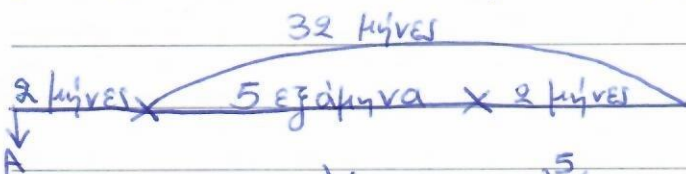 32 μήνες
2 μήνες 5 εξάμηνα 2 μήνες
A
5